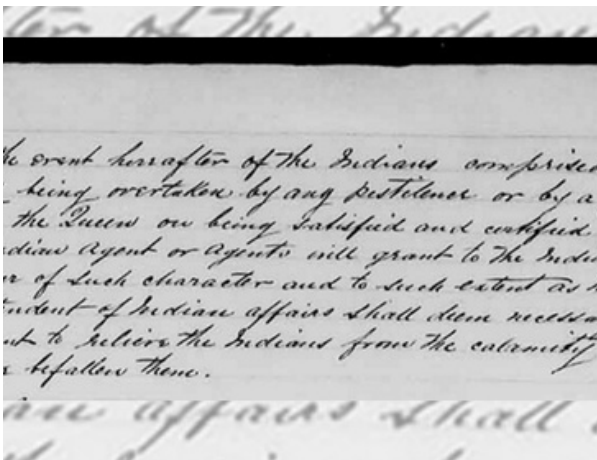 the event hereafter of the Indians comprised
being overtaken by any pestilence or by a
the Queen on being satisfied and certified
Indian Agent or Agents will grant to the Indi
of such character and to such extent as
tendent of Indian affairs shall deem necessa
nt to relieve the Indians from the calamity
befallen them.
an affairs shall